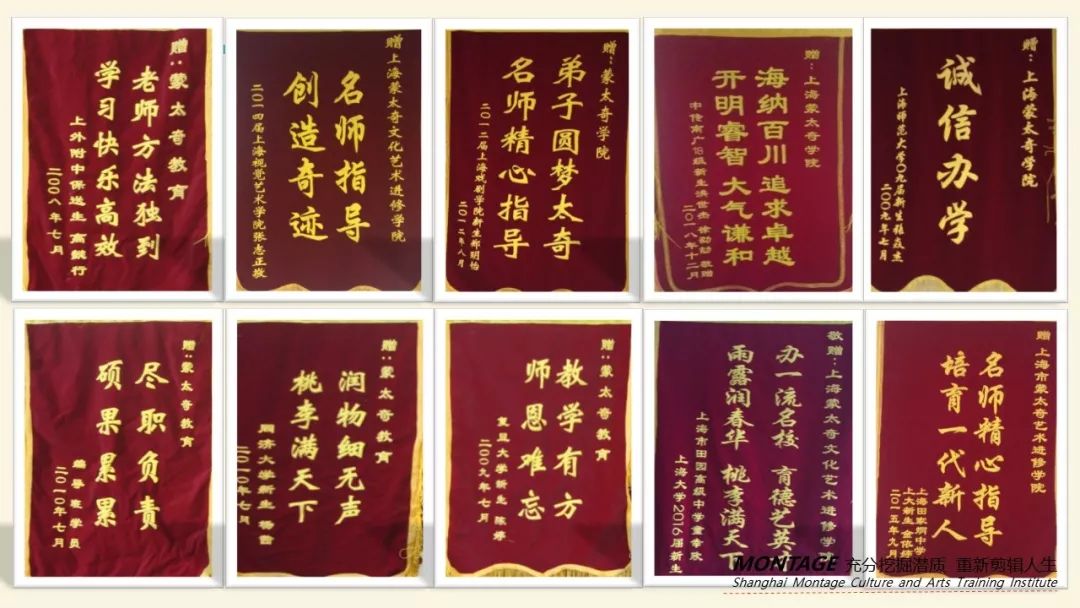 赠:蒙太奇教育
老师方法独到
学习快乐高效
上外附中保送生 高懿行
二〇〇八年七月
赠上海蒙太奇文化艺术进修学院
名师指导
创造奇迹
二〇一四届上海视觉艺术学院张志正敬
赠:蒙太奇学院
弟子圆梦太奇
名师精心指导
二〇一二届上海戏剧学院新生郑明怡
二〇一二年八月
赠:上海蒙太奇学院
海纳百川 追求卓越
开明睿智 大气谦和
敬赠
二〇一八年十二月
赠:上海蒙太奇学院
诚信办学
上海师范大学〇九届新生
二〇〇九年七月
赠:蒙太奇教育
尽职负责
硕果累累
编导班学员
二〇一〇年七月
赠:蒙太奇教育
润物细无声
桃李满天下
同济大学新生
二〇一〇年七月
赠:蒙太奇教育
教学有方
师恩难忘
复旦大学新生 陈婷
二〇〇九年七月
敬赠:上海蒙太奇文化艺术进修学
办一流名校 育德艺英才
雨露润春华 桃李满天下
上海市田园高级中学
上海大学2016届新生
赠上海市蒙太奇艺术进修学院
名师精心指导
培育一代新人
上海田家炳中学
上大新生金依
二〇一五年九月
MONTAGE 充分挖掘潜质 重新剪辑人生
Shanghai Montage Culture and Arts Training Institute